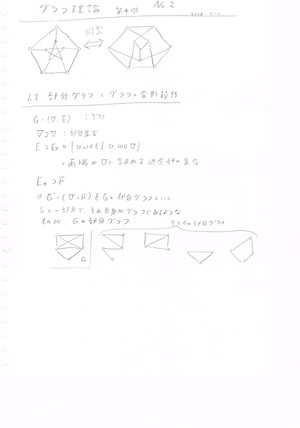 グラフ理論 第4回 No.2
同型
1.2 部分グラフとグラフの変形操作
G = (V, E) : グラフ
V ⊃ U : 部分集合
E ⊃ E_U = { uv∈E | u,v∈U }
= 両端が U に含まれる辺全部の集合
E_U ⊃ F
G' = (U, F) を G の部分グラフという
Gの一部分で、それ自身がグラフであるような
ものが、Gの部分グラフ
G